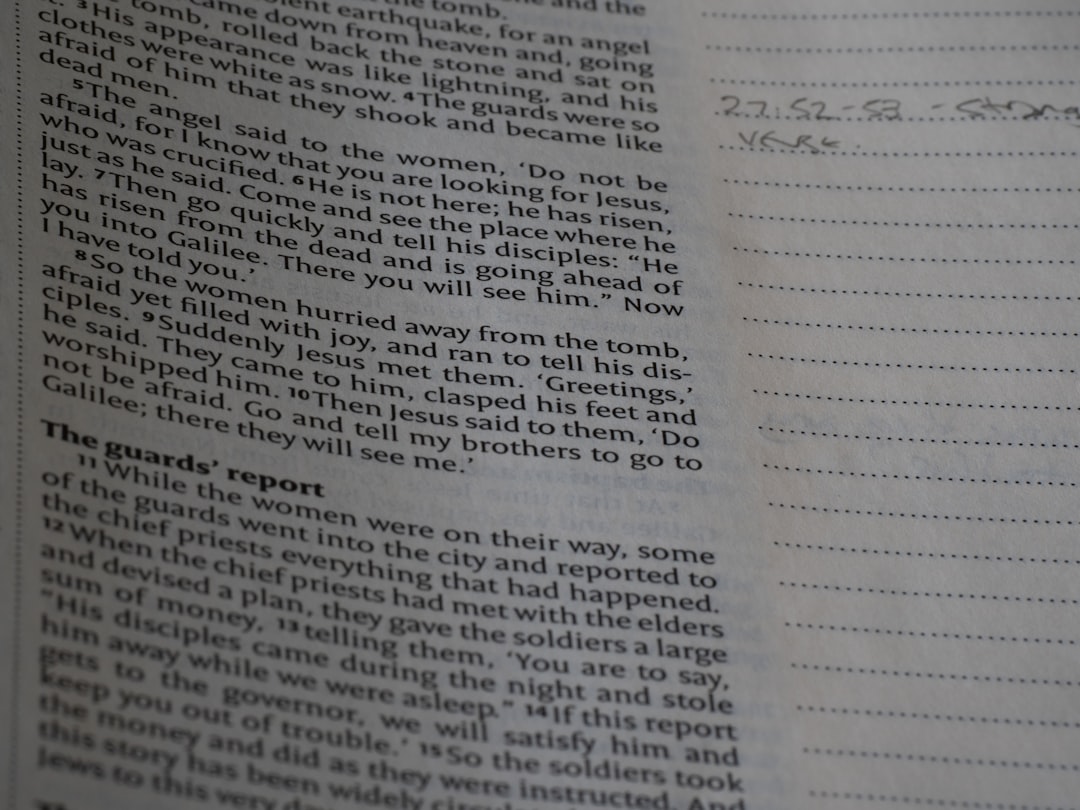 the tomb. and the
ent earthquake, for an angel
came down from heaven and, going
tomb, rolled back the stone and sat on
3 His appearance was like lightning, and his
clothes were white as snow. 4 The guards were so
afraid of him that they shook and became like
dead men.
5 The angel said to the women, ‘Do not be
afraid, for I know that you are looking for Jesus,
who was crucified. 6 He is not here; he has risen,
just as he said. Come and see the place where he
lay. 7 Then go quickly and tell his disciples: “He
has risen from the dead and is going ahead of
you into Galilee. There you will see him.” Now
I have told you.’
8 So the women hurried away from the tomb,
afraid yet filled with joy, and ran to tell his dis-
ciples. 9 Suddenly Jesus met them. ‘Greetings,’
he said. They came to him, clasped his feet and
worshipped him. 10 Then Jesus said to them, ‘Do
not be afraid. Go and tell my brothers to go to
Galilee; there they will see me.’
The guards’ report
11 While the women were on their way, some
of the guards went into the city and reported to
the chief priests everything that had happened.
12 When the chief priests had met with the elders
and devised a plan, they gave the soldiers a large
sum of money, 13 telling them, ‘You are to say,
“His disciples came during the night and stole
him away while we were asleep.” 14 If this report
gets to the governor, we will satisfy him and
keep you out of trouble.’ 15 So the soldiers took
the money and did as they were instructed. And
this story has been widely circul
Jews to this very da
27:52-53 - Strong
verse.